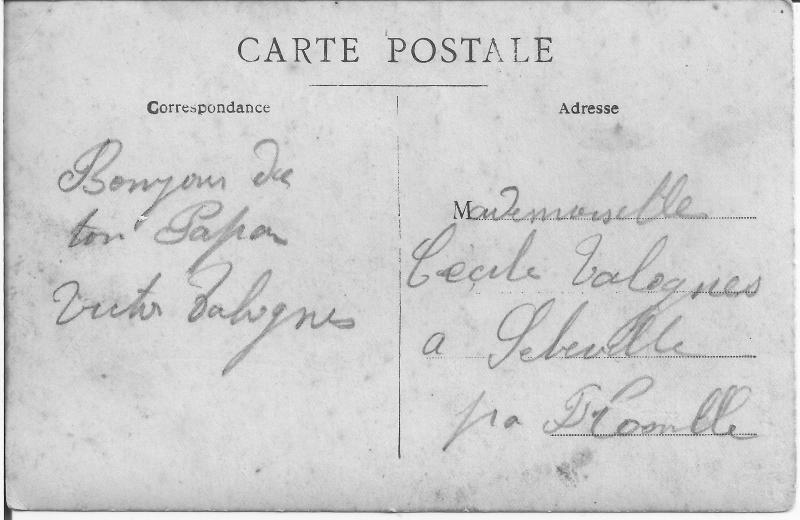 CARTE POSTALE
Correspondance
Bonjour de
ton Papa
Victor Valognes
Adresse
Mademoiselle
Cecile Valognes
a Sebeville
par Blosville